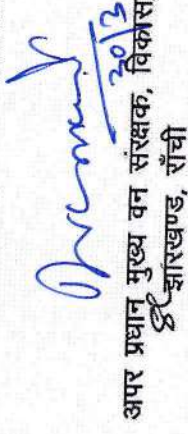 30/3
अपर प्रधान मुख्य वन संरक्षक, विकास
झारखण्ड, राँची